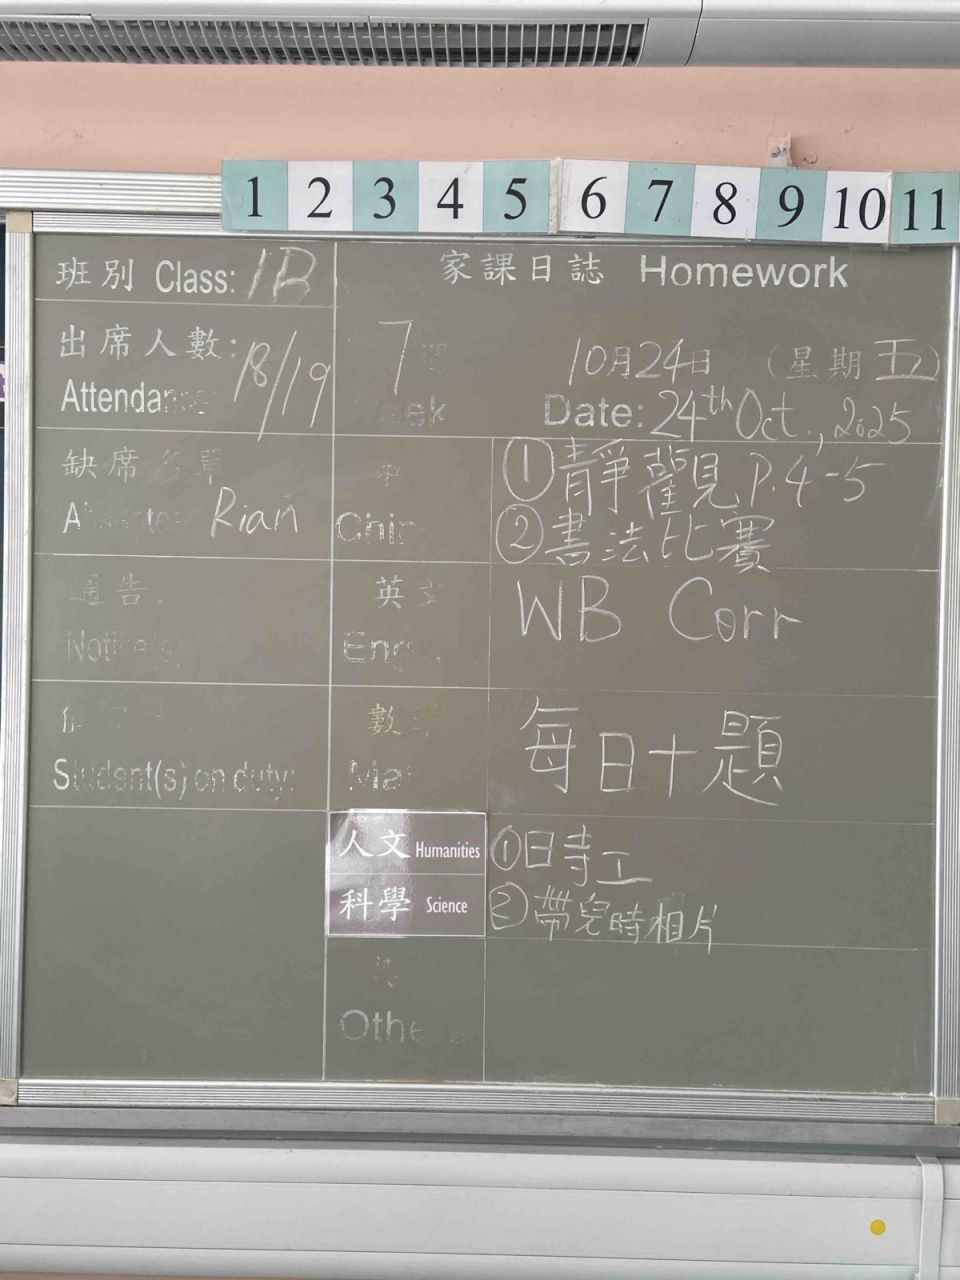 1 2 3 4 5 6 7 8 9 10 11
班別 Class: 1B
家課日誌 Homework
出席人數: 18/19
7
10月24日 (星期五)
Date: 24th Oct., 2025
缺席名單
Rian
中
① 靜觀 P.4-5
② 書法比賽
通告
英文
WB Corr
數
每日十題
Student(s) on duty:
人文 Humanities
科學 Science
① 日寺工
② 帶兒時相片